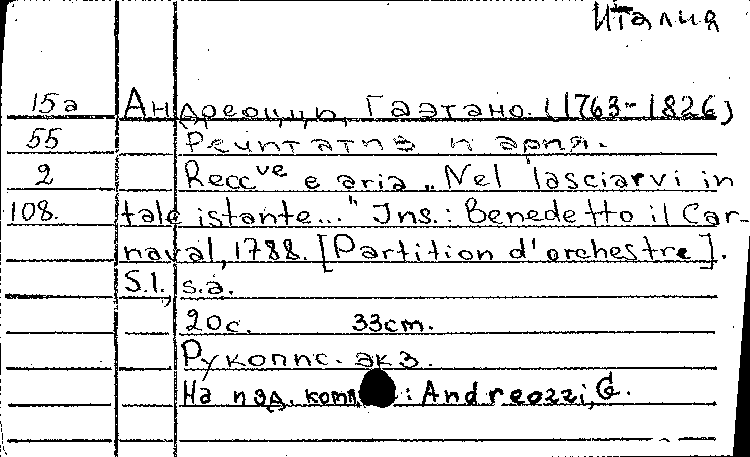 Италия
15а Андреоцци, Гаэтано. (1763-1826)
55 Речитатив и ария.
2 Reccve e aria „Nel lasciarvi in
108. tale istante..." Ins.: Benedetto il Car-
naval, 1788. [Partition d'orchestre].
S.l., s.a.
20с. 33cm.
Рукопис. экз.
На изд. : Andreozzi, G.